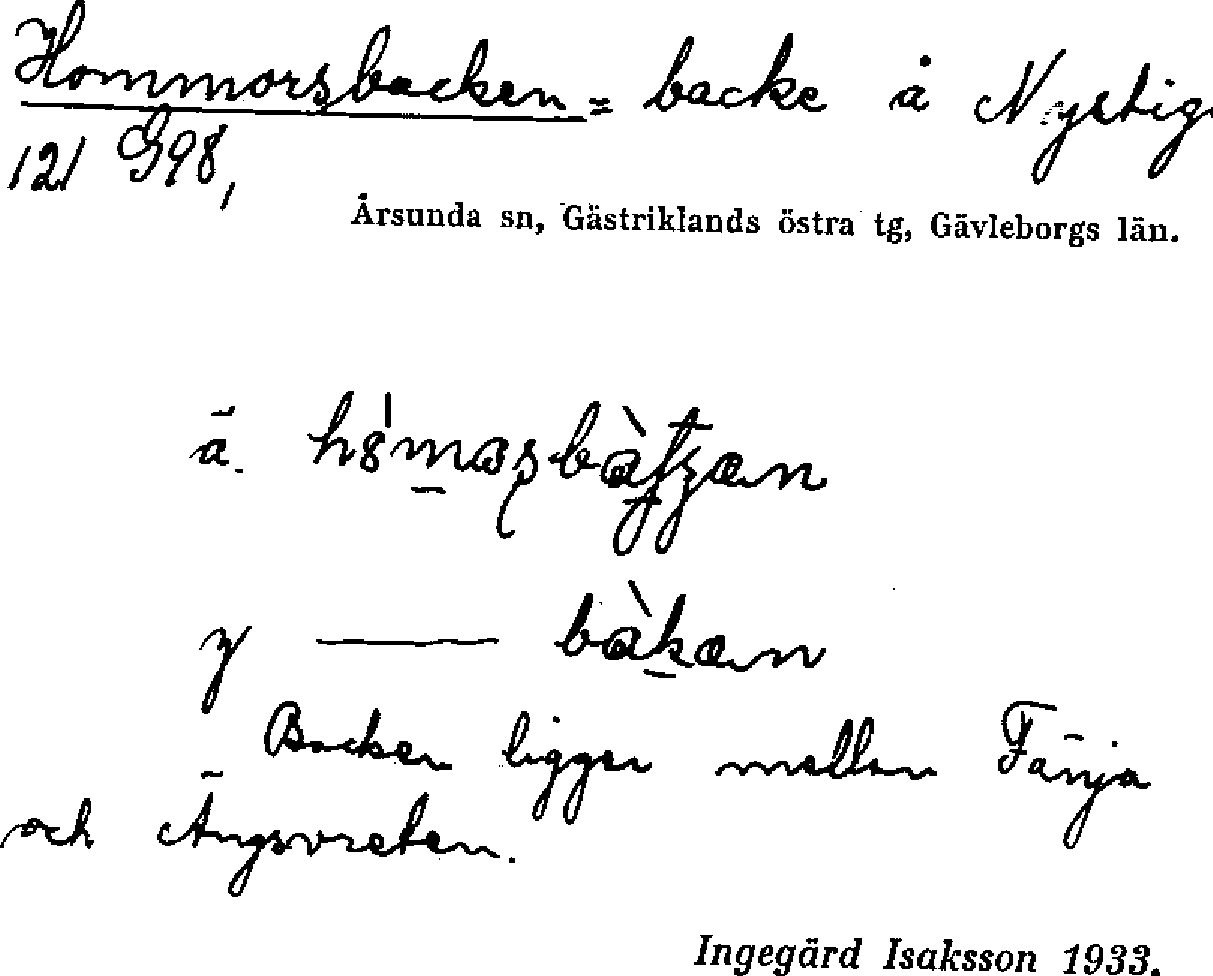 Hommorsbacken = backe å Nystig
121 G98,
Årsunda sn, Gästriklands östra tg, Gävleborgs län.
ä.
y ——— bàkan
Backen ligger mellan Färja
och Ängsvreten.
Ingegärd Isaksson 1933.